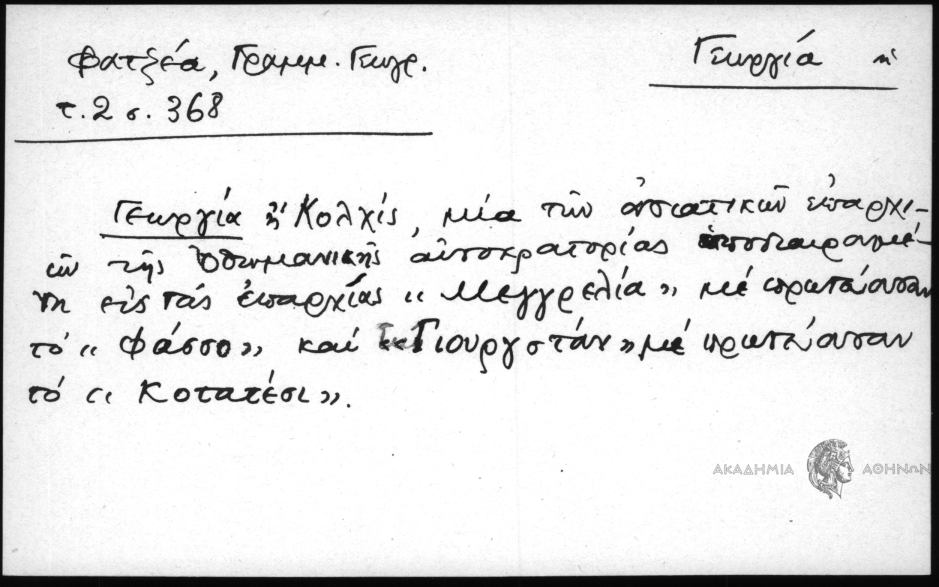 Φατζέα, Γραμμ. Γεωγρ.
τ. 2 σ. 368
Γεωργία ἡ
Γεωργία ἤ Κολχίς, μία τῶν ἀσιατικῶν ἐπαρχι-
ῶν τῆς Ὀθωμανικῆς αὐτοκρατορίας ὑποδιαιρουμέ-
νη εἰς τάς ἐπαρχίας "Μεγγρελία" μέ πρωτεύουσαν
τό "Φάσσο" καί "Γιουργστάν" μέ πρωτεύουσαν
τό "Κοτατέσι".
ΑΚΑΔΗΜΙΑ ΑΘΗΝΩΝ